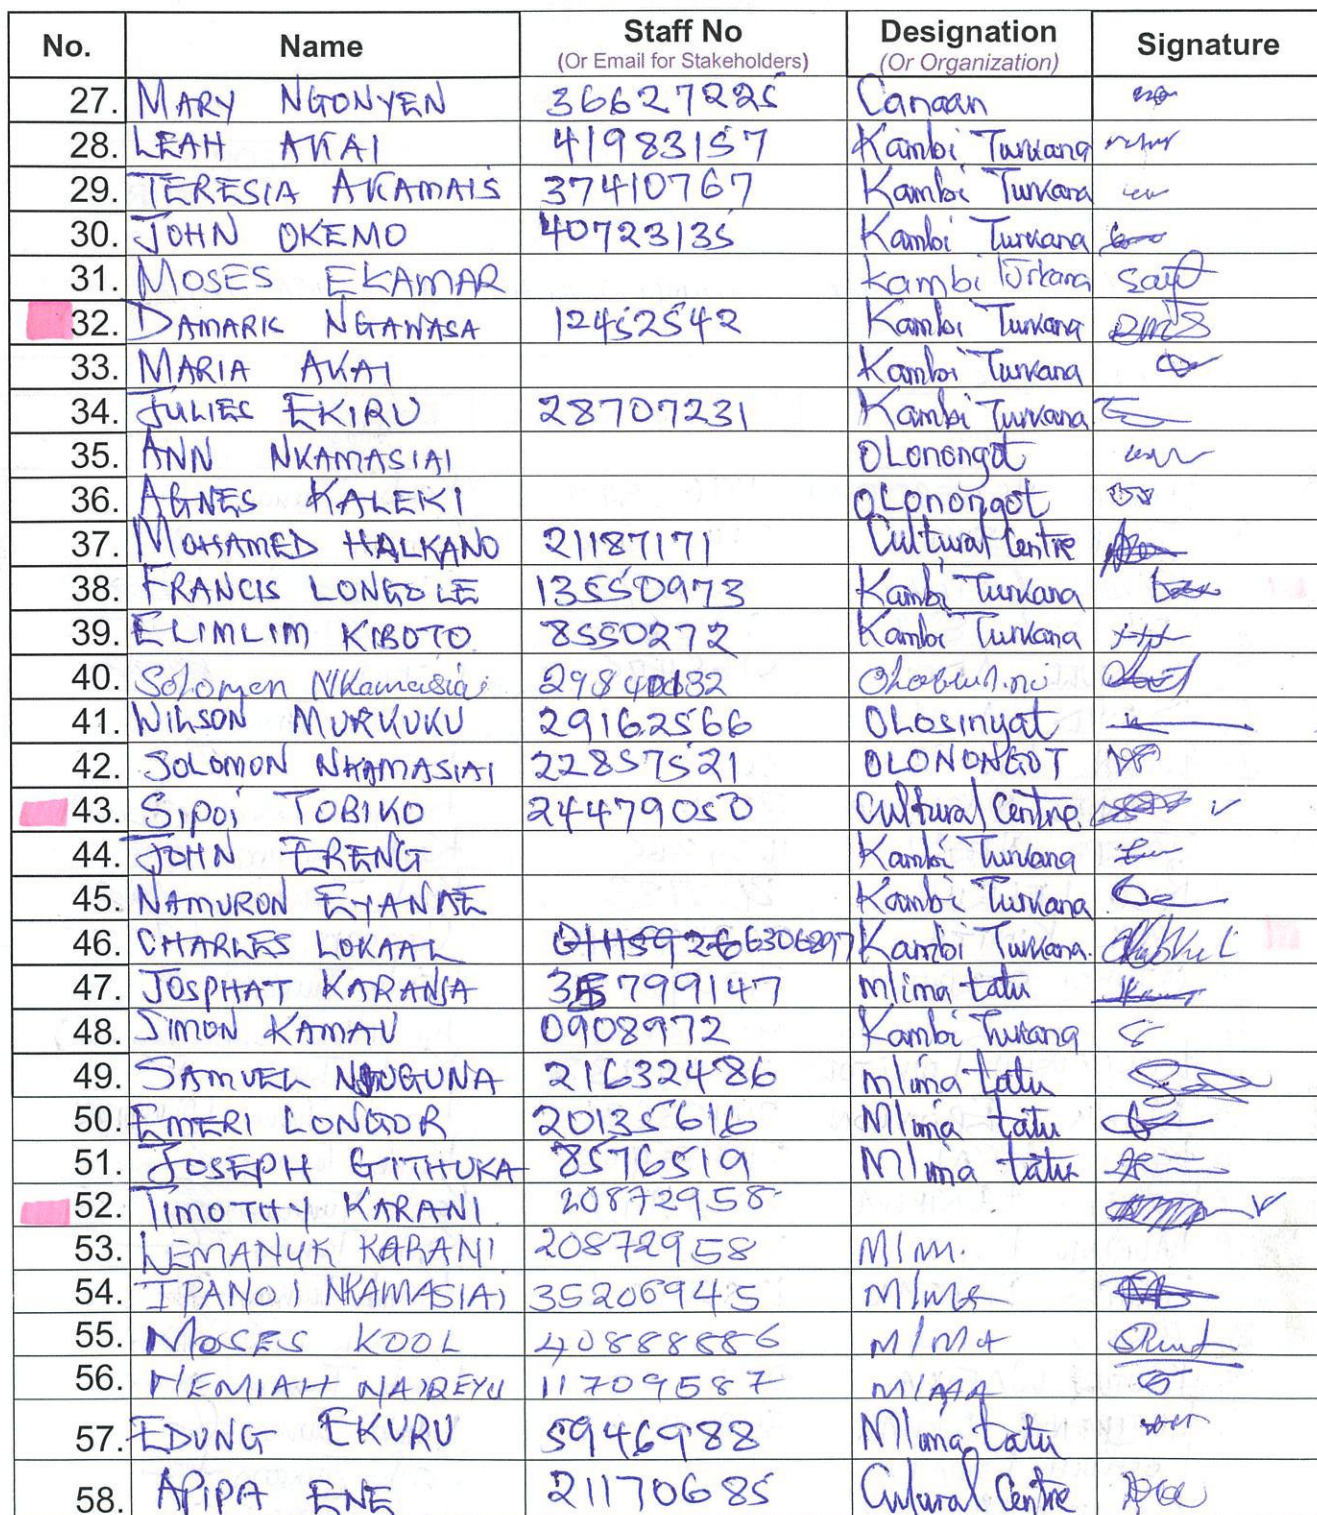 No. Name Staff No (Or Email for Stakeholders) Designation (Or Organization) Signature
27. MARY NGONYEN 36627225 Canaan
28. LEAH AKAI 41983157 Kambi Turkana
29. TERESIA AKAMAIS 37410767 Kambi Turkana
30. JOHN OKEMO 40723135 Kambi Turkana
31. MOSES EKAMAR Kambi Turkana
32. DAMARIC NGAWASA 12452542 Kambi Turkana
33. MARIA AKAI Kambi Turkana
34. JULIES EKIRU 28707231 Kambi Turkana
35. ANN NKAMASIAI OLonongot
36. AGNES KALEKI OLonongot
37. MOHAMED HALKANO 21187171 Cultural Centre
38. FRANCIS LONGOLE 13550973 Kambi Turkana
39. ELIMLIM KIBOTO 8550272 Kambi Turkana
40. Solomon NKamasiai
41. WILSON MURKUKU 29162566 OLosinyat
42. SOLOMON NKAMASIAI 22857521 OLONONGOT
43. Sipoi TOBIKO 24479050 Cultural Centre
44. JOHN ERENG Kambi Turkana
45. NAMURON EYANAE Kambi Turkana
46. CHARLES LOKAAL 6306897 Kambi Turkana.
47. JOSPHAT KARANJA 35799147 mlima tatu
48. SIMON KAMAU 0908972 Kambi Turkana
49. SAMUEL NJUGUNA 21632486 mlima tatu
50. EMERI LONGOR 20135616 Mlima tatu
51. JOSEPH GITHUKA 8576519 Mlima tatu
52. TIMOTHY KARANI 20872958
53. LEMANUK KARANI 20872958 Mlm.
54. IPANOI NKAMASIAI 35206945
55. MOSES KOOL 40888886
56. NEMIAH 11709587
57. EDUNG EKURU 59446988 Mlima tatu
58. APIPA ENE 21170685 Cultural Centre